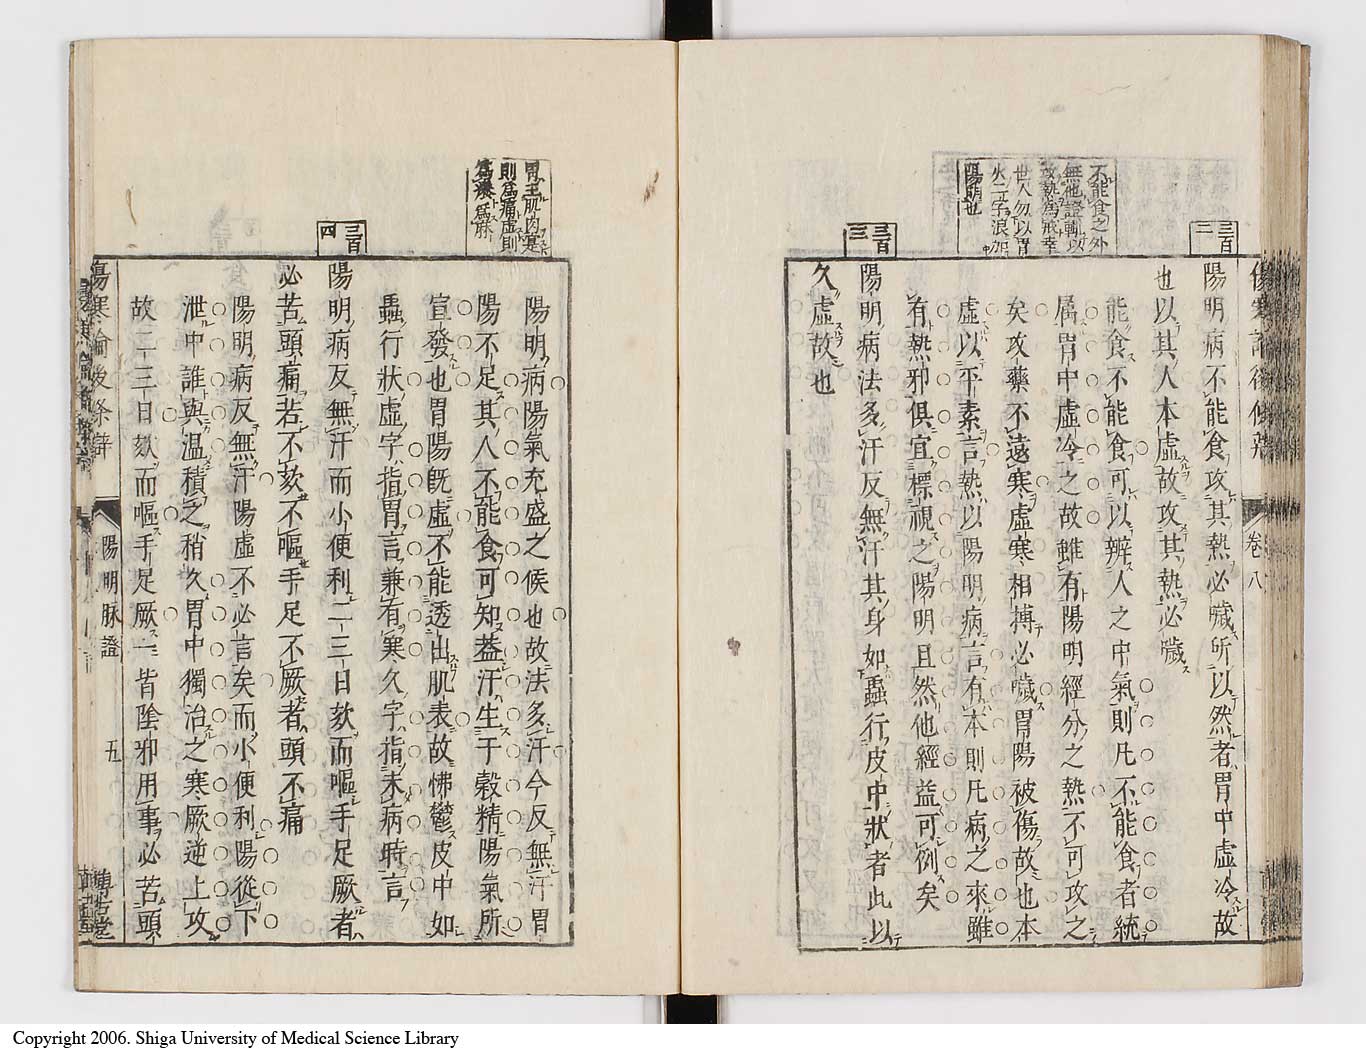 傷寒論後條辨
卷八
不能食之外
無他證輒以
攻熱爲戒幸
世人勿以胃
火二字浪加
陽明也
三百二
陽明病不能食攻其熱必噦所以然者胃中虛冷故
也以其人本虛故攻其熱必噦
能食不能食可以辨人之中氣則凡不能食者統
屬胃中虛冷之故雖有陽明經分之熱不可攻之
矣攻藥不遠寒虛寒相搏必噦胃陽被傷故也本
虛以平素言熱以陽明病言有本則凡病之來雖
有熱邪俱宜標視之陽明且然他經益可例矣
三百三
陽明病法多汗反無汗其身如蟲行皮中狀者此以
久虛故也
胃主肌肉寒
則爲痛虛則
陽明病陽氣充盛之候也故法多汗今反無汗胃
陽不足其人不能食可知蓋汗生于穀精陽氣所
宣發也胃陽旣虛不能透出肌表故怫鬱皮中如
蟲行狀虛字指胃言兼有寒久字指未病時言
三百四
陽明病反無汗而小便利二三日欬而嘔手足厥者
必苦頭痛若不欬不嘔手足不厥者頭不痛
陽明病反無汗陽虛不必言矣而小便利陽從下
泄中誰與溫積之稍久胃中獨治之寒厥逆上攻
故二三日欬而嘔手足厥一皆陰邪用事必苦頭
傷寒論後条辯
陽明脉證
五
Copyright 2006. Shiga University of Medical Science Library